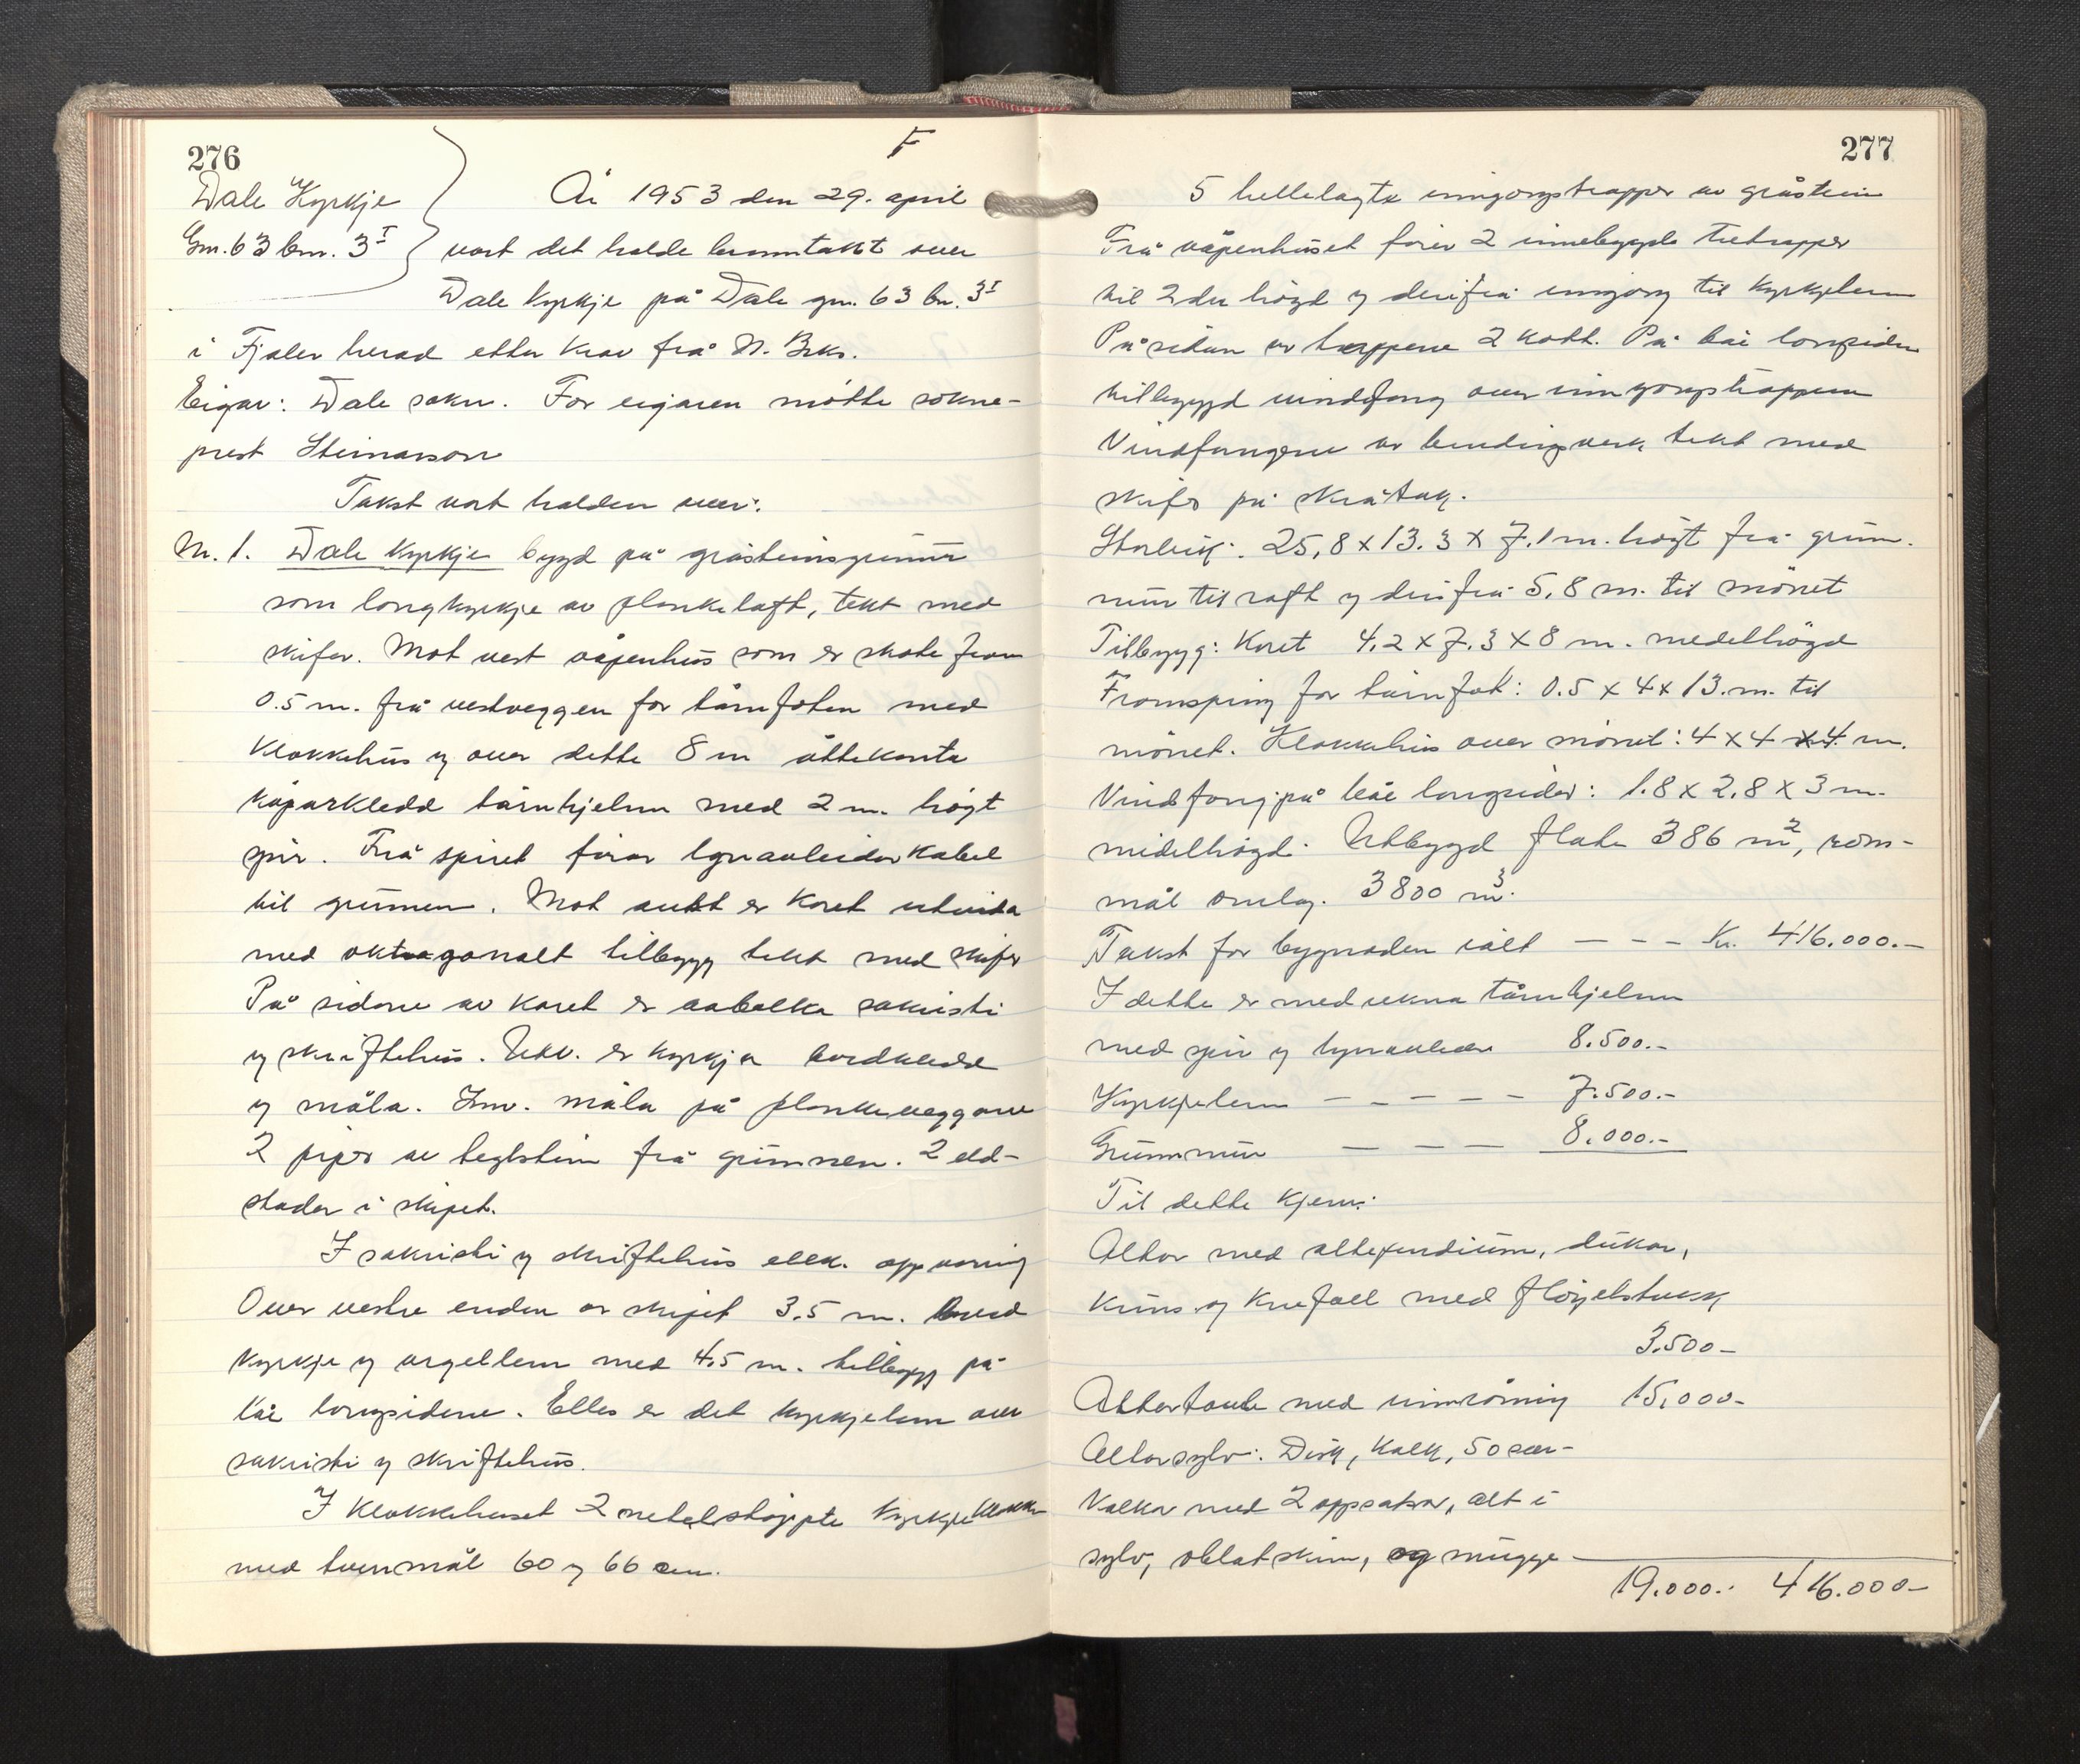 276
F
Dale Kyrkje
Gm. 63 bm. 3 I
År 1953 den 29. april
vart det halde branntakst over
Dale Kyrkje på Dale gm. 63 bn. 3 I
i Fjaler herad etter krav frå N. Brk.
Eigar: Dale sokn. For eigaren møtte sokne-
prest Steinarson
Takst vart halden over:
Nr. 1. Dale Kyrkje bygd på gråsteinsgrunn
som langkyrkje av plankelaft, tekt med
skifer. Mot vest våpenhus som er skote fram
0.5 m. frå vestveggen for tårnfoten med
Klokkehus og over dette 8 m åttekanta
koparkledd tårnhjelm med 2 m. høgt
spir. Frå spiret fører lynavleidarkabel
til grunnen. Mot aust er koret utvida
med oktogonalt tilbygg tekt med skifer
På sidone av koret er avbolka sakristi
og skriftehus. Utv. er kyrkja bordkledd
og måla. Inv. måla på plankeveggane
2 piper av teglstein frå grunnen. 2 eld-
stader i skipet.
I sakristi og skriftehus elek. oppvarming
Over vestre enden av skipet 3.5 m. breid
kyrkje og orgellem med 4,5 m. tilbygg på
båe langsidene. Elles er det kyrkjelem over
sakristi og skriftehus.
I klokkehuset 2 metalstøypte kyrkjeklokker
med tverrmål 60 og 66 cm.
277
5 hellelagte inngangstrapper av gråstein
Frå våpenhuset fører 2 innebygde tretrapper
til 2dre høgd og derifrå inngang til kyrkjelem
På sidan av trappene 2 kott. På båe langsider
tilbygd vindfang over inngangstrappene
Vindfangene av bindingsverk tekt med
skifer på skråtak.
Storleik: 25,8 x 13.3 x 7,1 m. høgt frå grunn-
mur til raft og derifrå 5,8 m. til mønet
Tilbygg: Koret 4.2 x 7.3 x 8 m. medelhøgd
Framspring for tårnfot: 0.5 x 4 x 13. m. til
mønet. Klokkehus over mønet: 4 x 4 x 4 m.
Vindfang på båe langsider: 1.8 x 2.8 x 3 m.
midelhøgd. Utbygd flate 386 m², rom-
mål omlag. 3800 m³.
Takst for bygnaden ialt — — — Kr. 416.000.—
I dette er medrekna tårnhjelm
med spir og lynavleiar 8.500.—
Kyrkjelem — — — — — 7.500.—
Grunnmur — — — 8.000.—
Til dette kjem:
Altar med altependium, dukar,
knus og knefall med fløyelstrekk
3.500—
Altertavle med innråming 15,000—
Altarsylv: Disk, kalk, 50 sær-
kalkar med 2 oppsatsar, alt i
sylv, oblatskrin, og mugge —
19.000.- 416.000—